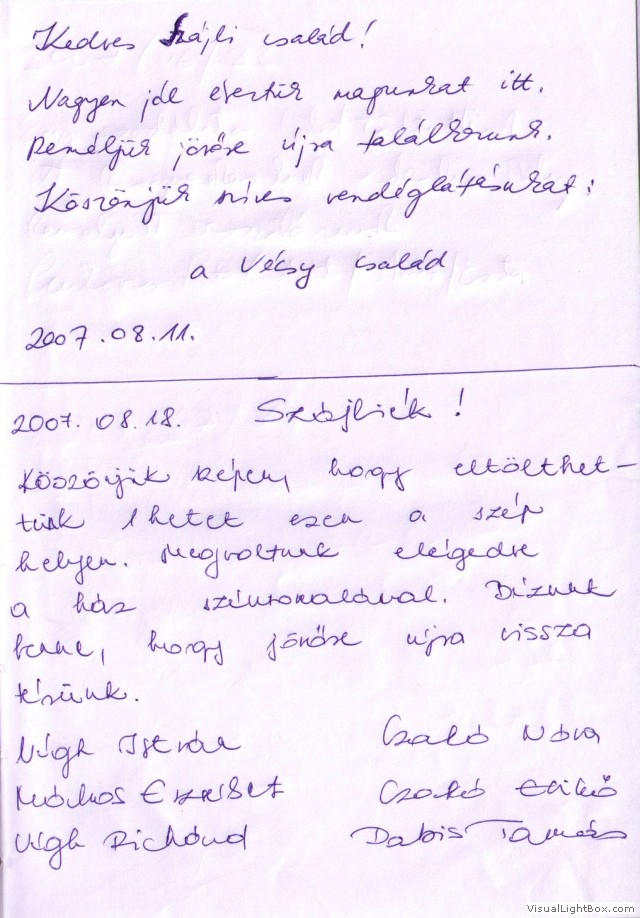 Kedves Szájli család!
Nagyon jól éreztük magunkat itt.
Reméljük jövőre újra találkozunk.
Köszönjük szíves vendéglátásukat:
a Vécsy család
2007.08.11.
2007. 08.18. Szájliék!
Köszönjük szépen, hogy eltölthet-
tünk 1 hetet ezen a szép
helyen. Megvoltunk elégedve
a ház színvonalával. Bízunk
benne, hogy jövőre újra vissza
térünk.
Vígh István Czakó Nóra
Márkos Erzsébet Czakó Enikő
Vígh Richárd Dabis Tamás
VisualLightBox.com